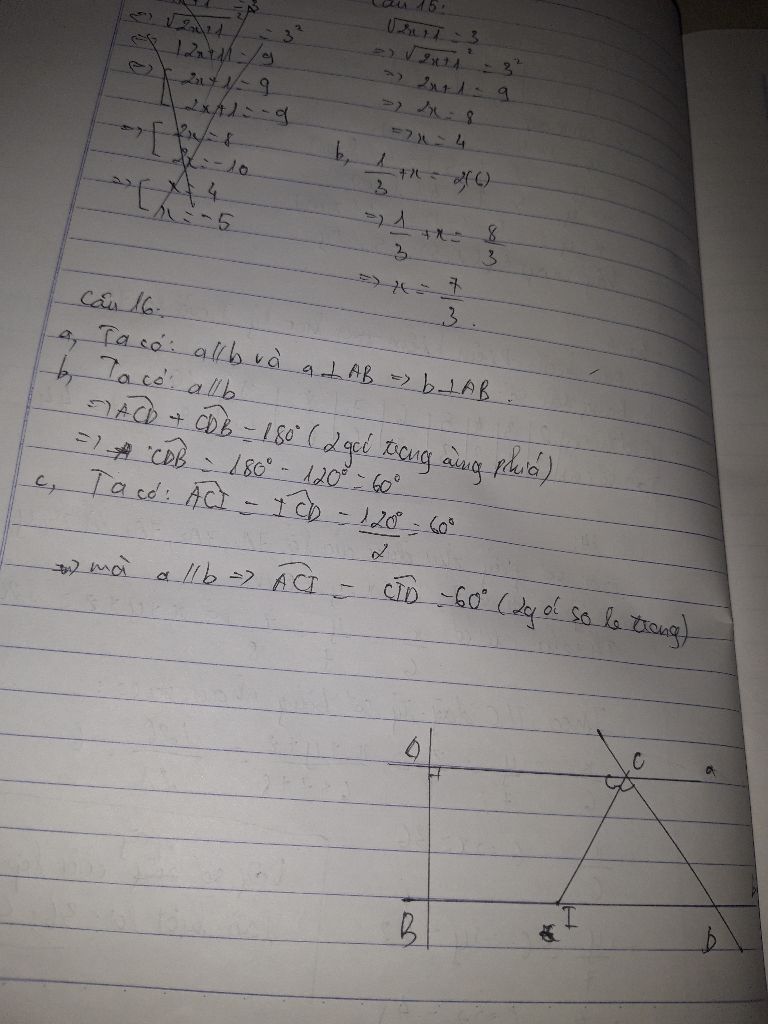 ⇔ √2x+1² = 3²
⇔ |2x+1| = 9
⇔ [ 2x+1 = 9
2x+1 = -9
=> [ 2x = 8
2x = -10
=> [ x = 4
x = -5
Câu 15:
√2x+1 = 3
=> √2x+1² = 3²
=> 2x+1 = 9
=> 2x = 8
=> x = 4
b, 1/3 + x =
=> 1/3 + x = 8/3
=> x = 7/3.
Câu 16:
a, Ta có: a//b và a⊥AB => b⊥AB.
b, Ta có: a//b
=> ACD + CDB = 180° (2 góc trong cùng phía)
=> CDB = 180° - 120° = 60°
c, Ta có: ACI = ICD = 120°/2 = 60°
mà a//b => ACI = CID = 60° (2 góc so le trong)
C a
B I D